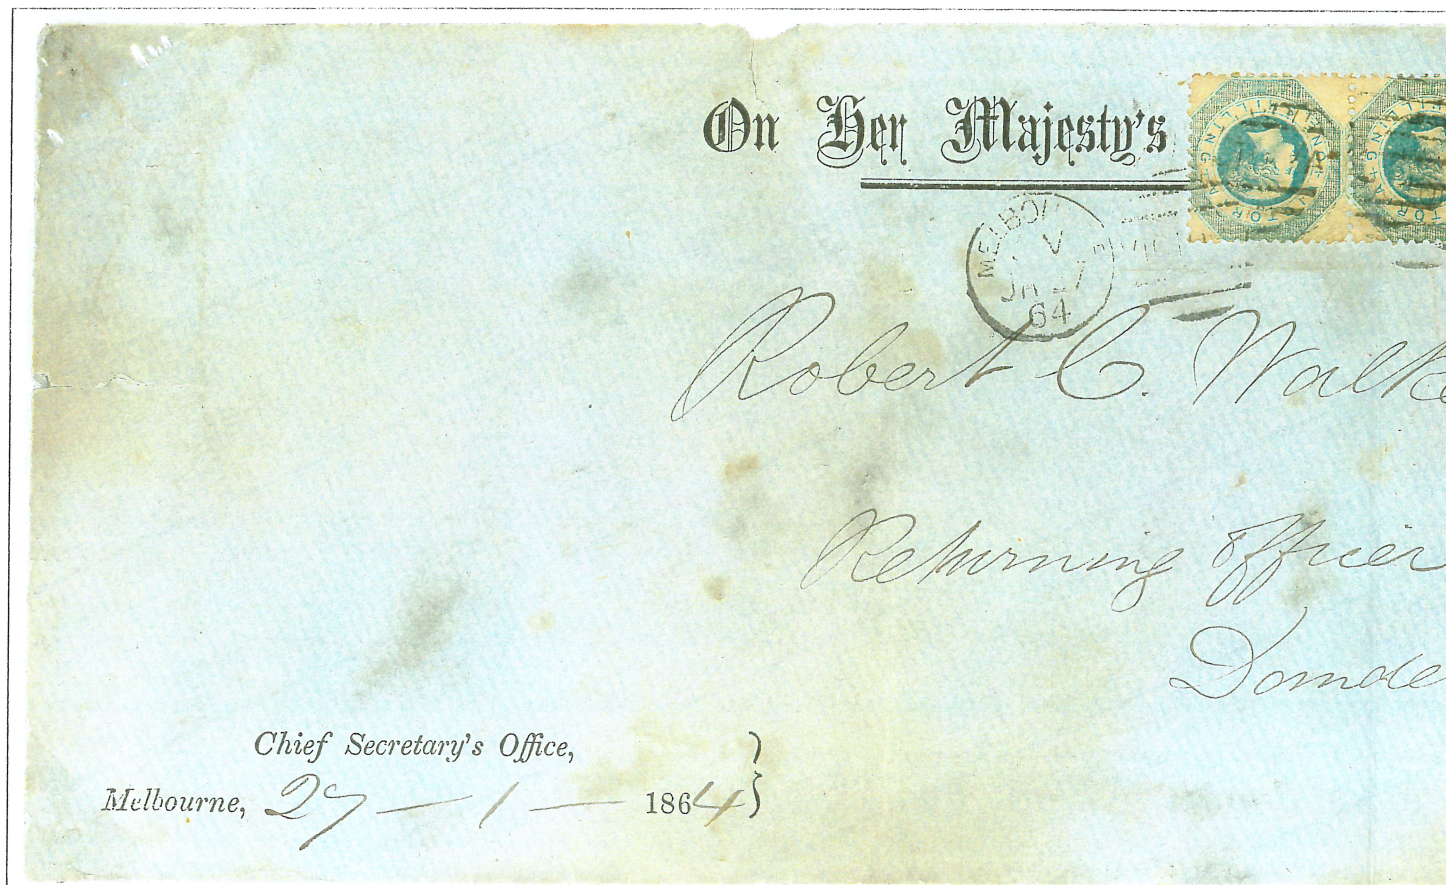 On Her Majesty's
MELBO
V
JA 27
64
VIC
Robert C. Walke
Returning Officer
Dande
Chief Secretary's Office,
Melbourne, 27 — 1 — 1864